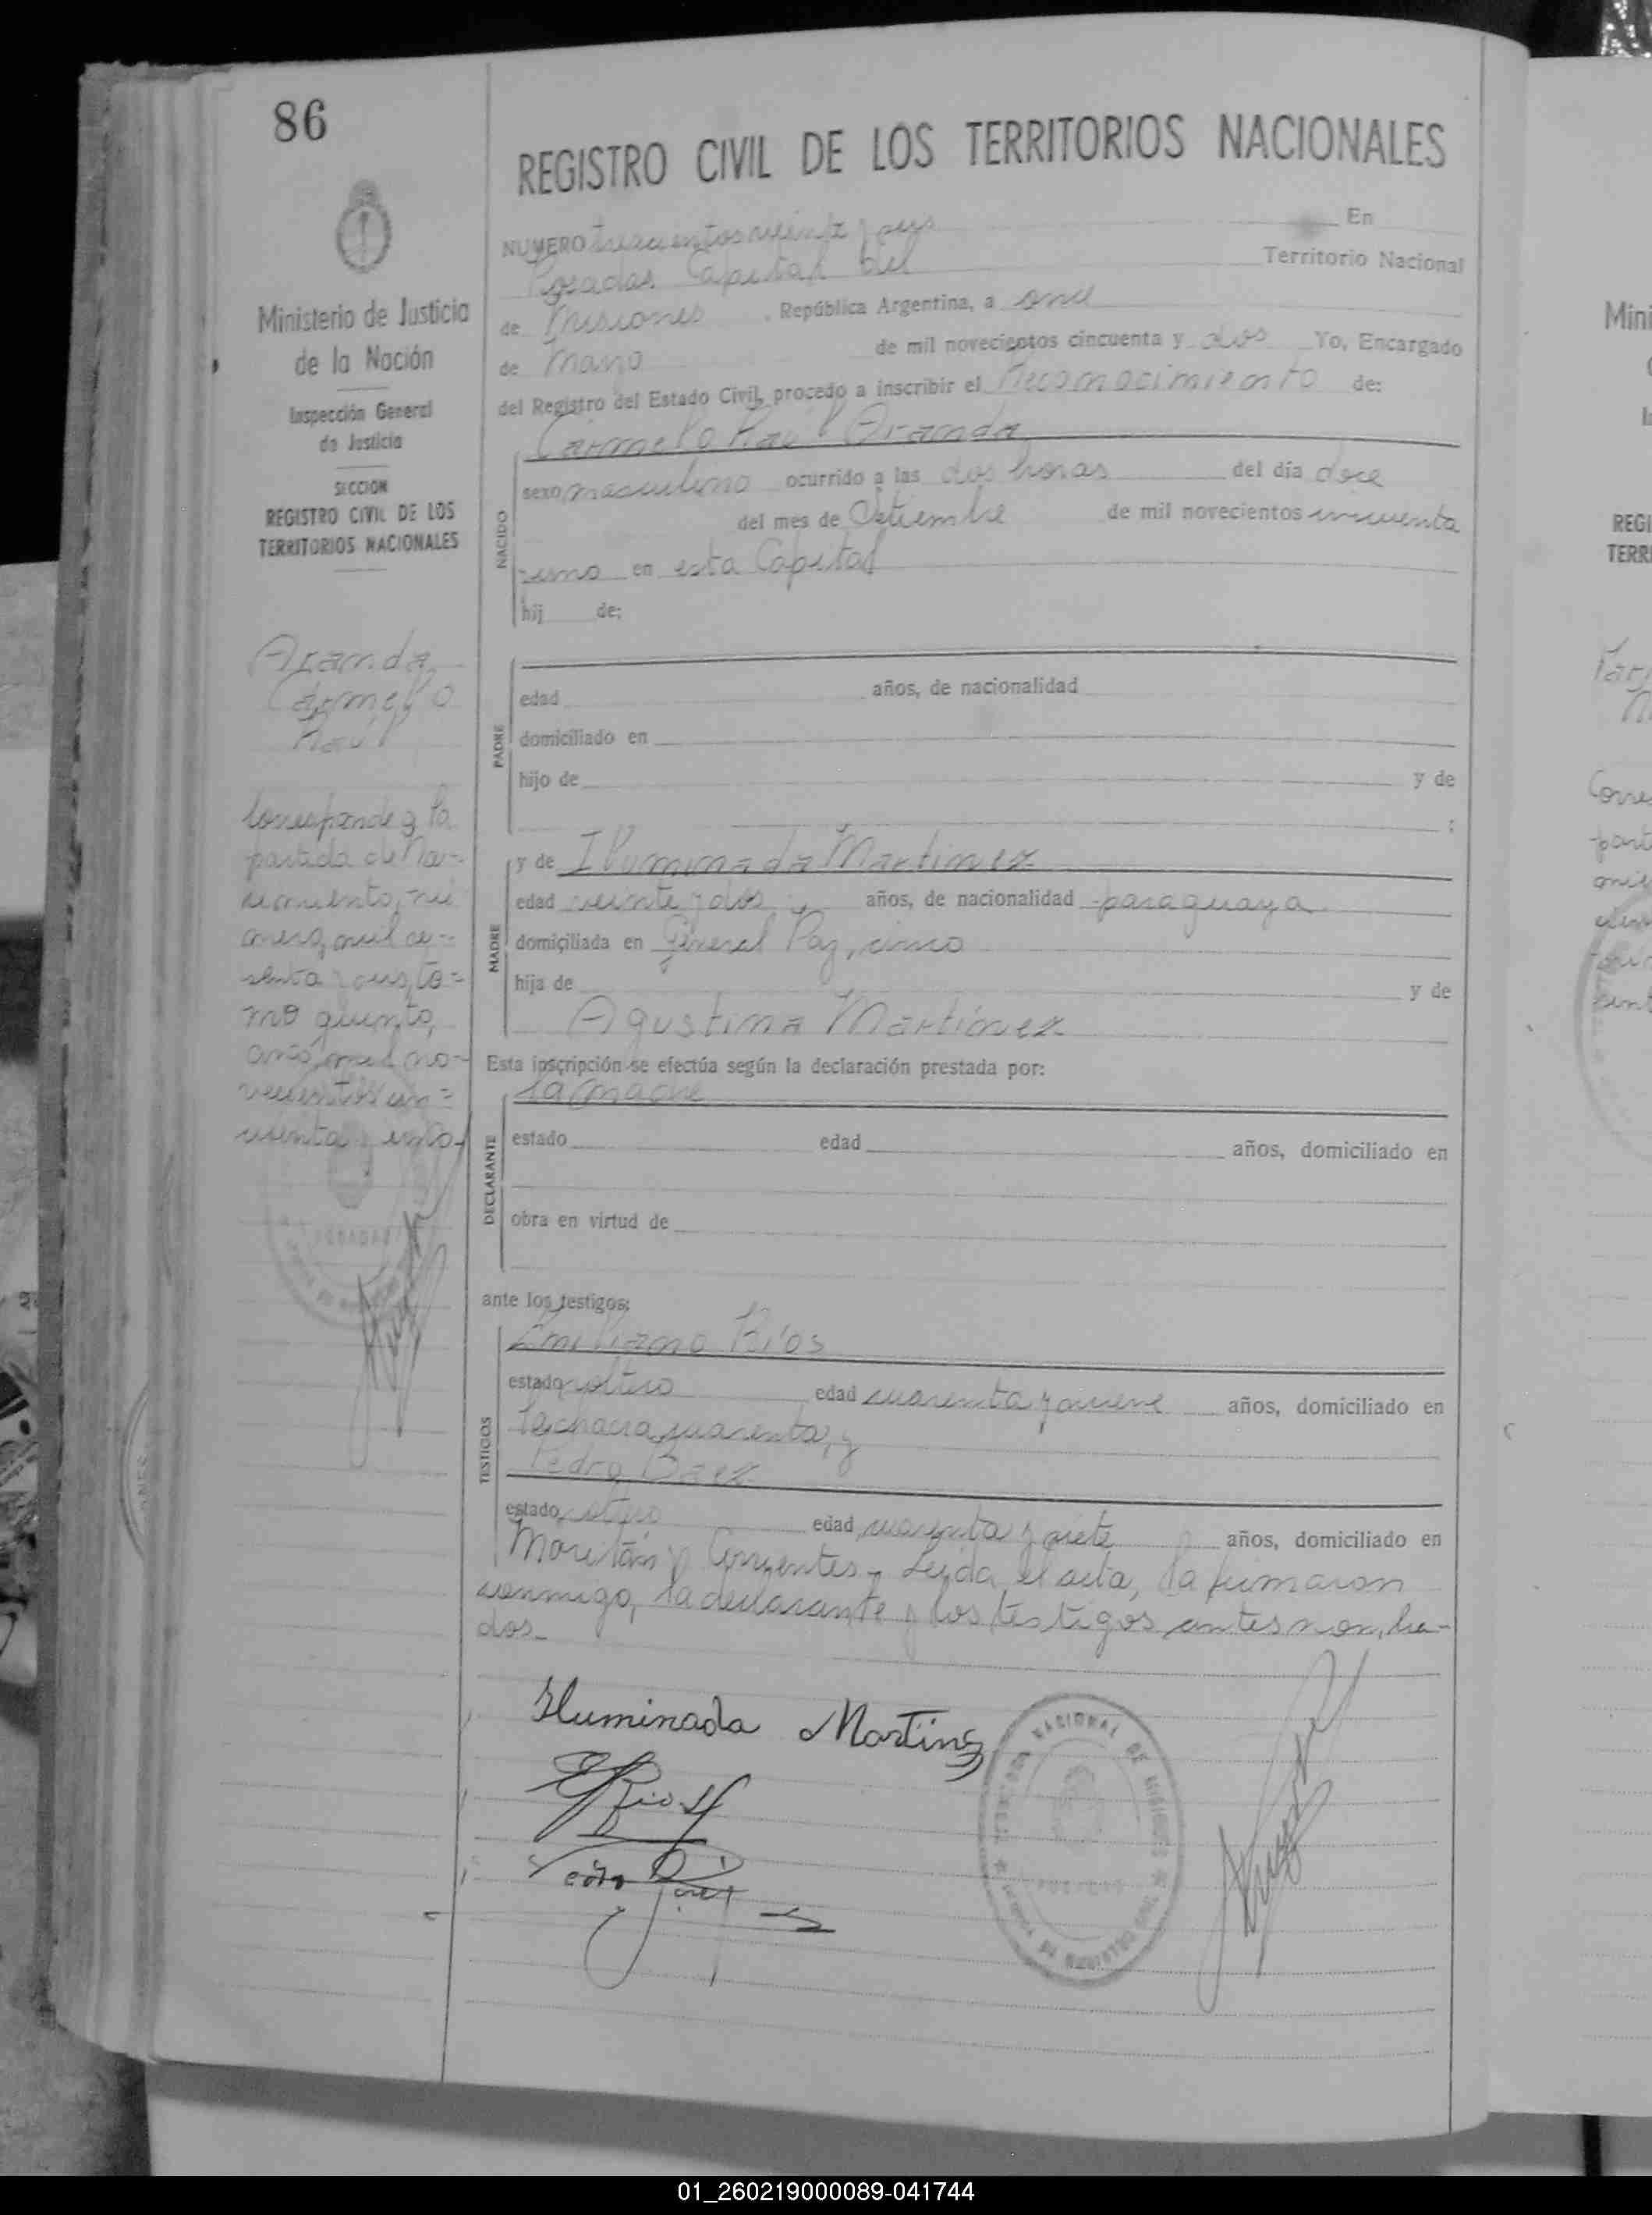 86
REGISTRO CIVIL DE LOS TERRITORIOS NACIONALES
Ministerio de Justicia
de la Nación
Inspección General
de Justicia
SECCION
REGISTRO CIVIL DE LOS
TERRITORIOS NACIONALES
Aranda,
Carmelo
Raúl
Corresponde a la
partida de Na-
cimiento, nú
mero, mil
senta y to=
mo quinto,
año, mil no-
vecientos cin=
cuenta y uno.
NUMERO trescientos veinte y En
Posadas Capital del Territorio Nacional
de Misiones , República Argentina, a once
de de mil novecientos cincuenta y dos Yo, Encargado
del Registro del Estado Civil, procedo a inscribir el Reconocimiento de:
Carmelo Raúl Aranda
NACIDO
sexo masculino ocurrido a las dos horas del día doce
del mes de Setiembre de mil novecientos cincuenta
uno en esta Capital
hij de:
PADRE
edad años, de nacionalidad
domiciliado en
hijo de y de
;
MADRE
y de Iluminada Martinez
edad veinte y dos años, de nacionalidad paraguaya
domiciliada en General Paz, cinco
hija de y de
Agustina Martínez
Esta inscripción se efectúa según la declaración prestada por:
la madre
DECLARANTE
estado edad años, domiciliado en
obra en virtud de
ante los testigos:
TESTIGOS
Emiliano Ríos
estado soltero edad cuarenta y nueve años, domiciliado en
la chacra cuarenta, y
Pedro Baez
estado soltero edad cuarenta y siete años, domiciliado en
Moritán y Corrientes. Leída el acta, la firmaron
conmigo, la declarante y los testigos antes nombra-
dos.
Iluminada Martinez
E Rios
Pedro Baez
NACIONAL DE MISIONES
01_260219000089-041744